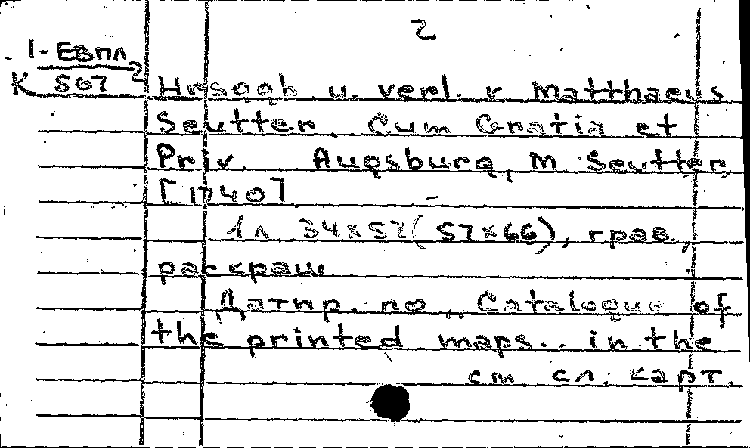 2
1-ЕВПЛ
К 567 2
Hrsggb. u. verl. v. Matthaeus
Seutter. Cum Gratia et
Priv. Augsburg, M. Seutter,
[1740].
1 л. 34x57 (57x66), грав.,
раскраш.
Датир. по „Catalogue of
the printed maps... in the
см. сл. карт.